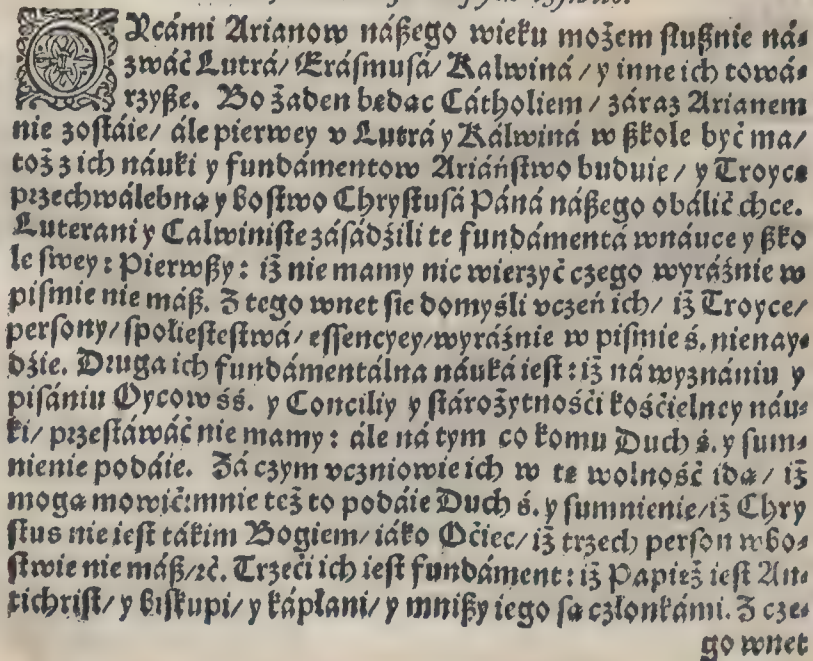 Oycámi Arianow nászego wieku możem słusznie ná-
zwáć Lutrá/ Erásmusá/ Kálwiná / y inne ich towá-
rzysze. Bo żaden będąc Cátholiem / záraz Arianem
nie zostáie/ ále pierwey v Lutrá y Kálwiná w szkole być ma/
toż z ich náuki y fundámentow Ariáństwo buduie / y Troycę
przechwálebną y bostwo Chrystusá Páná nászego obálić chce.
Luterani y Calwiniste zásádźili te fundámentá wnáuce y szko
le swey: Pierwszy: iż nie mamy nic wierzyć czego wyráźnie w
piśmie nie mász. Z tego wnet się domyśli vczeń ich/ iż Troyce/
persony/ społiestestwá/ essencyey/wyráźnie w piśmie ś. nienay-
dźie. Druga ich fundámentálna náuká iest: iż ná wyznániu y
pisániu Oycow śś. y Conciliy y stárożytnośći kośćielney náu-
ki/ przestáwáć nie mamy: ále ná tym co komu Duch ś. y sum-
nienie podáie. Zá czym vczniowie ich w tę wolność idą / iż
mogą mowić:mnie też to podáie Duch ś. y sumnienie/iż Chry
stus nie iest tákim Bogiem/ iáko Oćiec/ iż trzech person wbo-
stwie nie mász/ꝛć. Trzeći ich iest fundáment: iż Papież iest An-
tichrist/ y biskupi/ y kápłani/ y mniszy iego są członkámi. Z cze-
go wnet